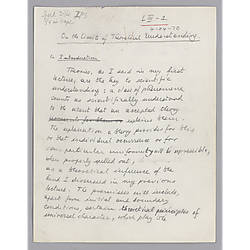 LIII-1
4-04-70
On the Limits of Theoretical Understanding.
1. Introduction
Theories, as I said in my first
lecture, are the key to scientific
understanding; a class of phenomena
counts as scientifically understood to
the extent that an accepted theory
explains them.
The explanation a theory provides for this
or that individual occurrence or for
some particular uniformity will be expressible,
when properly spelled out,
as a theoretical inference of the
kind I discussed in my previous
lecture. The premisses will include,
apart from initial and boundary
conditions certain theoretical principles of
universal character, which play the